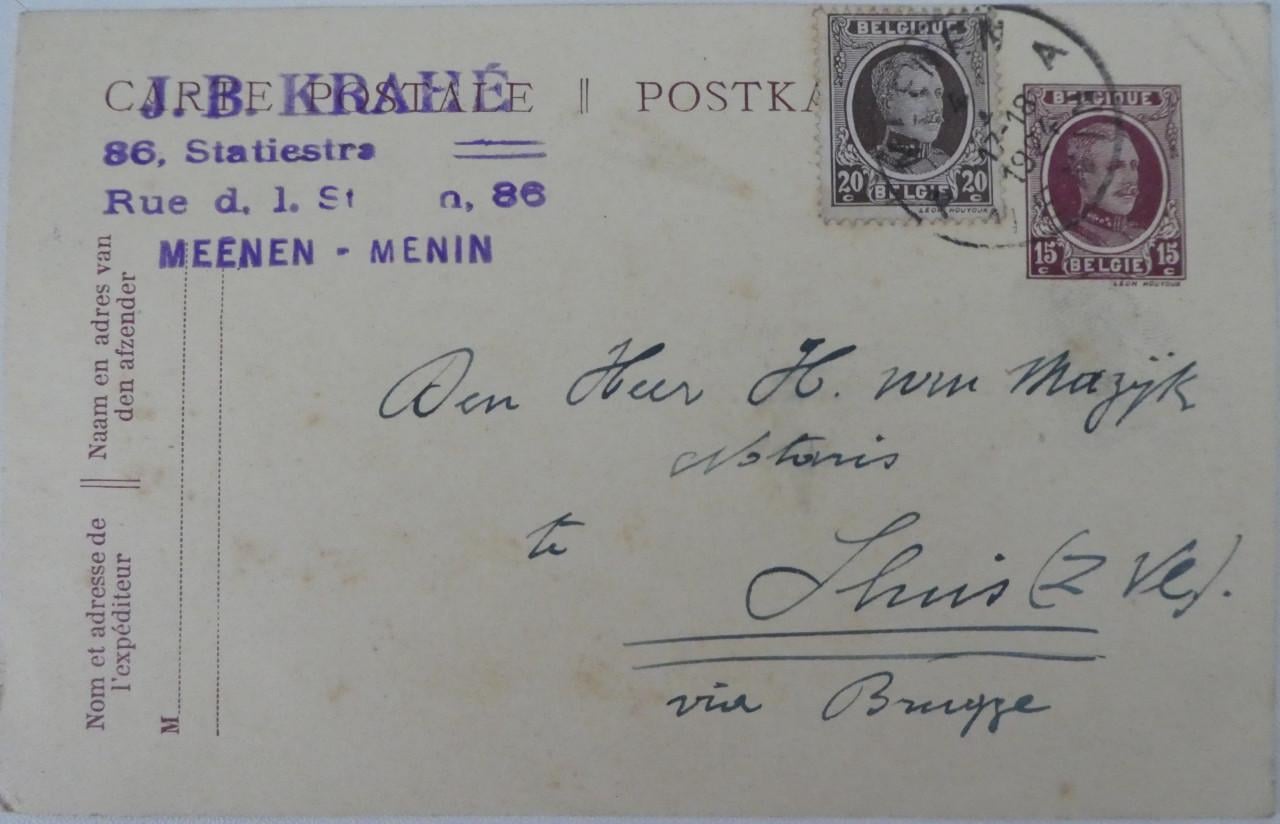 CARTE POSTALE || POSTKA
J. B. KRAHÉ
86, Statiestra
Rue d. l. St n, 86
MEENEN - MENIN
BELGIQUE
20 C BELGIE 20 C
LÉON HOUYOUX
A
17-18
BELGIQUE
15 C BELGIE 15 C
LÉON HOUYOUX
Naam en adres van
den afzender
Nom et adresse de
l'expéditeur
M
Den Heer H. van Mazijk
Notaris
te
Sluis (Z Vl).
via Brugge